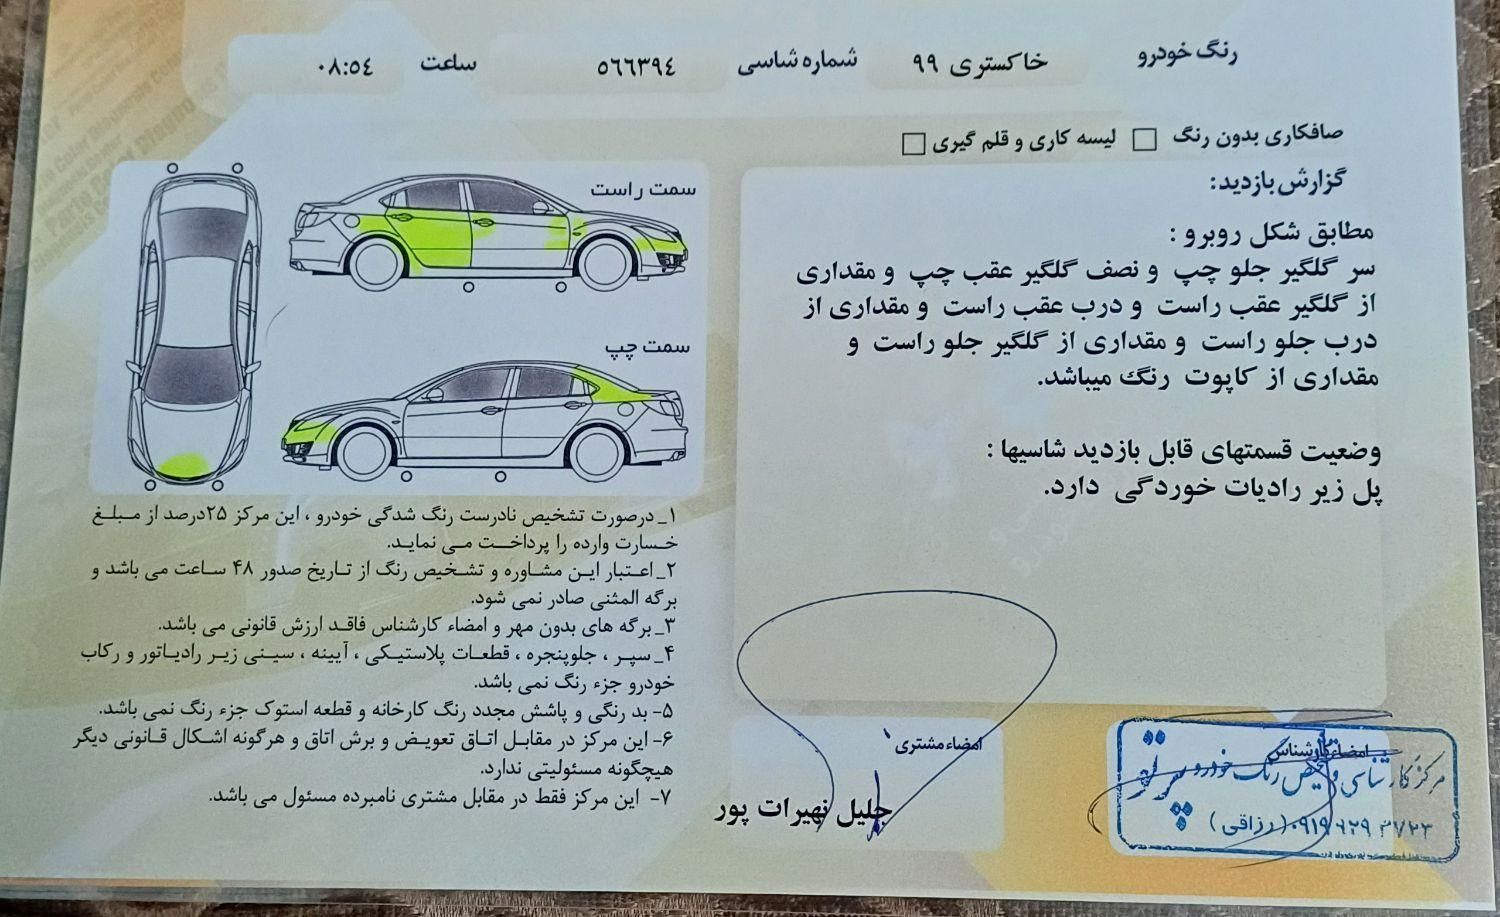 رنگ خودرو خاکستری ۹۹ شماره شاسی ٥٦٦٣٩٤ ساعت ٠٨:٥٤
صافکاری بدون رنگ لیسه کاری و قلم گیری
گزارش بازدید:
مطابق شکل روبرو :
سر گلگیر جلو چپ و نصف گلگیر عقب چپ و مقداری
از گلگیر عقب راست و درب عقب راست و مقداری از
درب جلو راست و مقداری از گلگیر جلو راست و
مقداری از کاپوت رنگ میباشد.
وضعیت قسمتهای قابل بازدید شاسیها :
پل زیر رادیات خوردگی دارد.
سمت راست
سمت چپ
۱_درصورت تشخیص نادرست رنگ شدگی خودرو ، این مرکز ۲۵درصد از مبلغ
خسارت وارده را پرداخت می نماید.
۲_اعتبار این مشاوره و تشخیص رنگ از تاریخ صدور ۴۸ ساعت می باشد و
برگه المثنی صادر نمی شود.
۳_برگه های بدون مهر و امضاء کارشناس فاقد ارزش قانونی می باشد.
۴_سپر ، جلوپنجره ، قطعات پلاستیکی ، آیینه ، سینی زیر رادیاتور و رکاب
خودرو جزء رنگ نمی باشد.
۵- بد رنگی و پاشش مجدد رنگ کارخانه و قطعه استوک جزء رنگ نمی باشد.
۶- این مرکز در مقابل اتاق تعویض و برش اتاق و هرگونه اشکال قانونی دیگر
هیچگونه مسئولیتی ندارد.
۷- این مرکز فقط در مقابل مشتری نامبرده مسئول می باشد.
امضاء مشتری
جلیل نهیرات پور
امضاء کارشناس
مرکز کارشناسی و تشخیص رنگ خودرو
۰۹۱۹۶۲۹۳۷۲۳ (رزاقی)